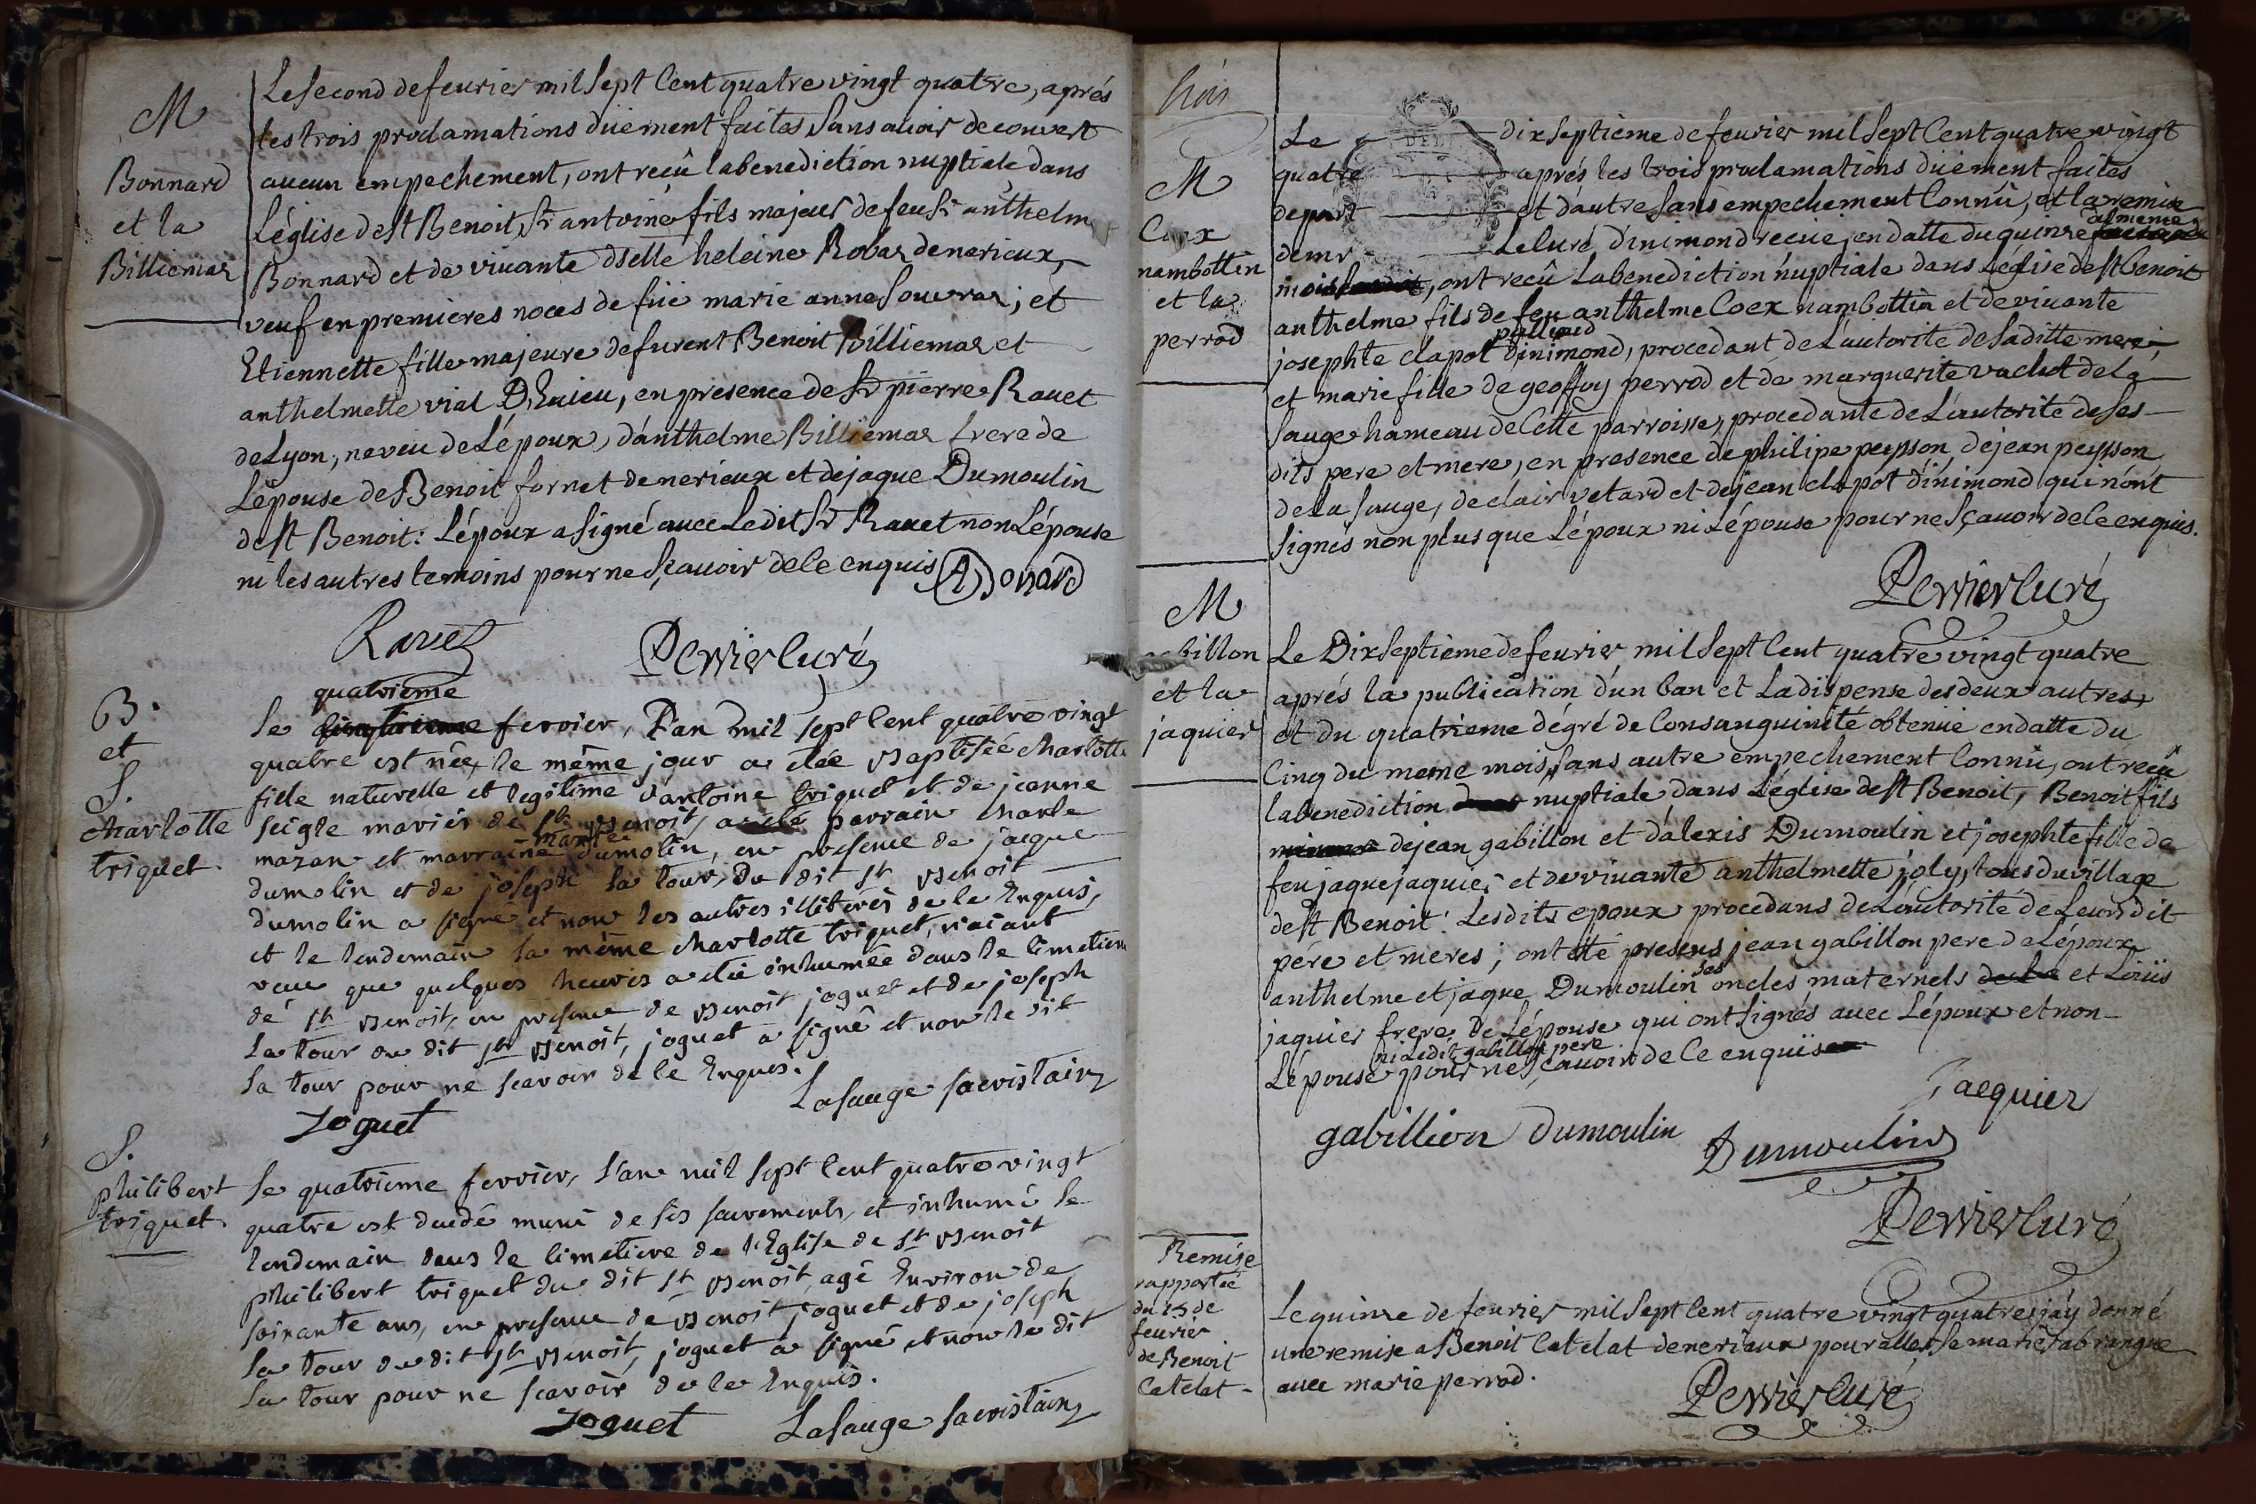 M
Bonnard
et la
Billiemaz
Le second de feurier mil sept Cent quatre vingt quatre, aprés
les trois proclamations düement faites sans auoir decouvert
aucun empechement, ont reçû la benediction nuptiale dans
L'église de st Benoit, sr antoine fils majeur de feu sr anthelm
Bonnard et de viuante dselle heleine Robaz de nerieux,
veuf en premieres noces de füe marie anne souuraz; et
Etiennette fille majeure de furent Benoit Billiemaz et
anthelmette vial D'huieu, en presence de sr pierre Rauet
de Lyon, neveu de L'époux, d'anthelme Billiemaz frere de
L'épouse de Benoit fornet de nerieux et de jaque Dumoulin
de st Benoit: L'époux a signé auec Le dit sr Rauet non L'épouse
ni les autres temoins pour ne sçauoir de ce enquis A Bonard
Ravet Perrier Curé
B.
et
S.
charlotte
triquet
quatrieme
Le fevrier, L'an mil sept Cent quatre vingt
quatre est née, le même jour a étée Baptisée charlotte
fille naturelle et legitime d'antoine triquet et de jeanne
seigle mariés de st Benoit, a été parrain charle
marie
mazan et marraine dumolin, en presence de jacque
dumolin et de joseph La tour, du dit st Benoit
dumolin a signé et non les autres illiterés de ce Enquis,
et le lendemain La même charlotte triquet, n'aiant
vecu que quelques heures a étée inhumée dans le Cimetiere
de st Benoit, en presence de Benoit joguet et de joseph
La tour du dit st Benoit, joguet a signé et non le dit
La tour pour ne scavoir de ce Enquis.
Joguet Lasauge sacristain
S.
philibert
triquet
Le quatrieme fevrier, L'an mil sept Cent quatre vingt
quatre est decedé muni de ses sacrements, et inhumé le
lendemain dans le Cimetiere de l'Eglise de st Benoit
philibert triquet du dit st Benoit, agé Environ de
soixante ans, en presence de Benoit joguet et de joseph
La tour du dit st Benoit, joguet a signé et non le dit
La tour pour ne scavoir de ce Enquis.
Joguet Lasauge sacristain
trois
M
Coex
nambottin
et la
perrod
Le dix septieme de feurier mil sept Cent quatre vingt
quatre aprés les trois proclamations düement faites
de part et d'autre sans empechement Connû, et la remise
de mr Le Curé d'inimond recüe, en datte du quinze du meme
mois, ont reçû La benediction nuptiale dans L'église de st Benoit
anthelme fils de feu anthelme Coex nambottin et de viuante
paillaud
josephte clapot d'inimond, procedant de L'autorité de sa ditte mere,
et marie fille de geoffoy perrod et de marguerite vachot de la
sauge hameau de Cette parroisse, procedante de L'autorité de ses
dits pere et mere, en presence de philipe peysson, de jean peysson
de la sauge, de clair vetard et de jean clapot d'inimond qui n'ont
signés non plus que L'époux ni L'épouse pour ne sçauoir de ce enquis.
Perrier Curé
M
gabillon
et la
jaquier
Le Dix septieme de feurier mil sept Cent quatre vingt quatre
aprés la publication d'un ban et La dispense des deux autres
et du quatrieme dégré de Consanguinité obtenüe en datte du
Cinq du meme mois, sans autre empechement Connû, ont reçû
la benediction nuptiale dans L'église de st Benoit, Benoit fils
de jean gabillon et d'alexis Dumoulin et josephte fille de
feu jaque jaquier et de viuante anthelmette joly, tous du village
de st Benoit: Les dits epoux procedans de L'autorité de Leurs dit
pére et meres; ont été presens jean gabillon pere de L'époux,
ses
anthelme et jaque Dumoulin oncles maternels et Loüis
jaquier frere de L'épouse qui ont signés auec L'époux et non
ni Le dit gabillon pere
L'épouse pour ne sçauoir de Ce enquis
Jacquier
gabillion Dumoulin Dumoulin
Perrier Curé
Remise
rapportée
du 15 de
feurier
de Benoit
Catelat
Le quinze de feurier mil sept Cent quatre vingt quatre j'ay donné
une remise a Benoit Catelat de nerieux pour aller se marier a brangue
auec marie perrod.
Perrier Curé